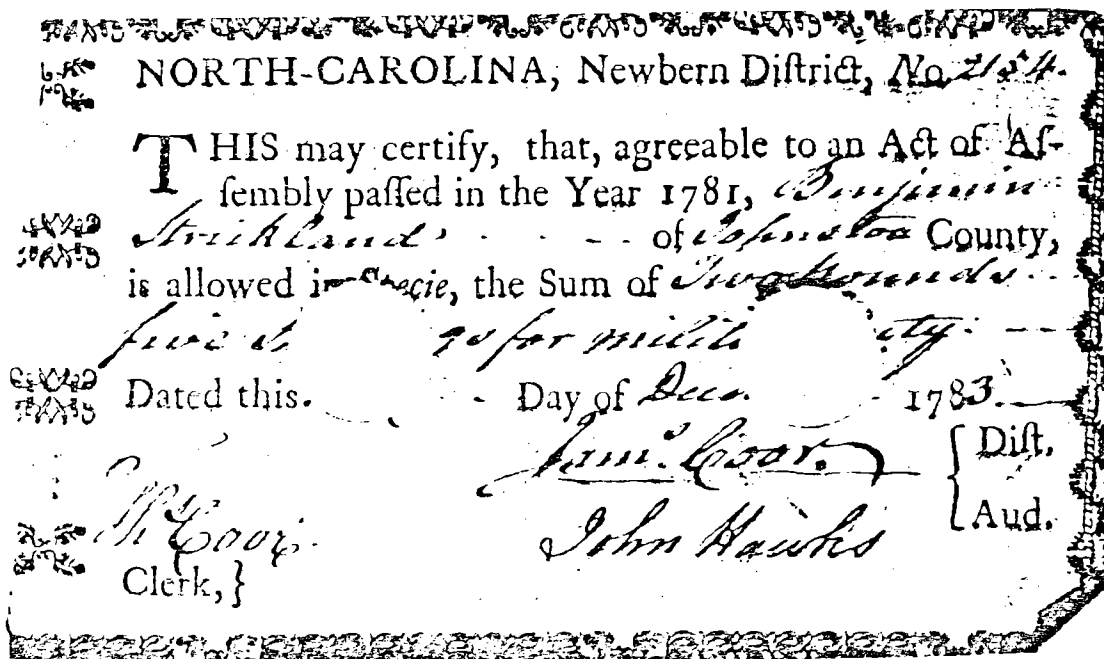 NORTH-CAROLINA, Newbern Diſtrict, No 2154.
THIS may certify, that, agreeable to an Act of Aſ-
ſembly paſſed in the Year 1781, Benjamin
Strickland of Johnston County,
is allowed in Specie, the Sum of Two Pounds
five for
Dated this Day of 1783
Jams. Coor. { Diſt.
John Hawks { Aud.
Coor
Clerk, }